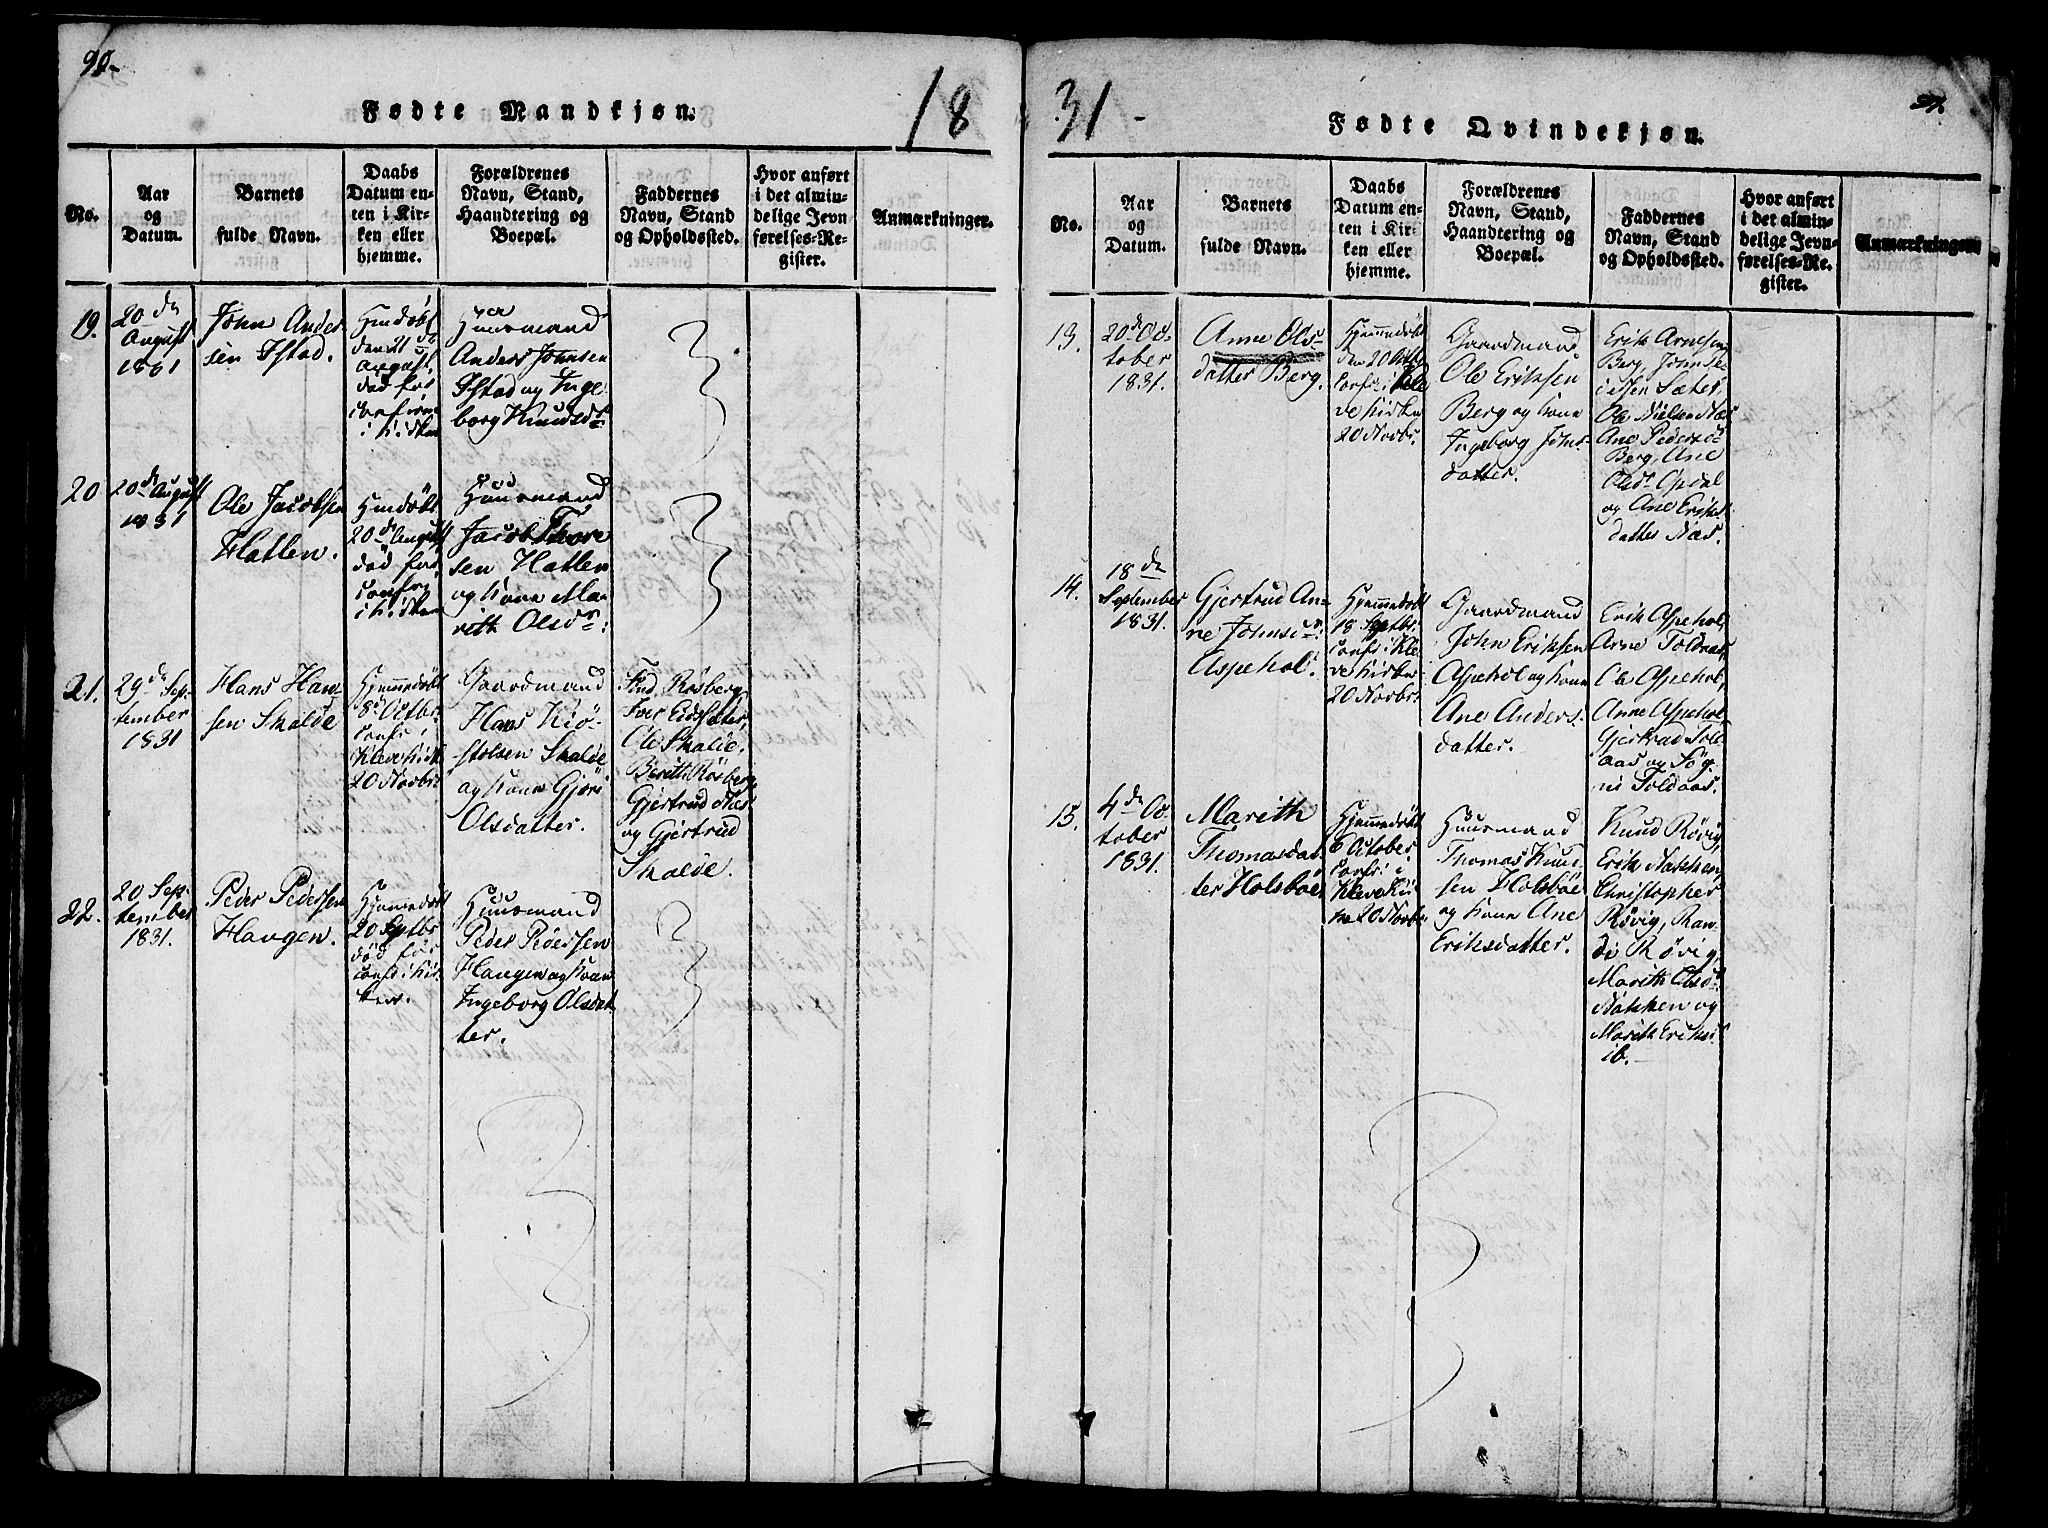 90.
Fødte Mandkjøn.
18
No.
Aar
og
Datum.
Barnets
fulde Navn.
Daabs
Datum en-
ten i Kir-
ken eller
hjemme.
Forældrenes
Navn, Stand,
Haandtering og
Boepæl.
Faddernes
Navn, Stand
og Opholdssted.
Hvor anført
i det almin-
delige Jevn
førelses-Re-
gister.
Anmærkninger.
19.
20de
August
1831
John Ander-
sen Istad.
den 21de
August,
død før
i Kirken
Huusmand
Anders Johnsen
Istad og Inge-
borg Knudsdr
20
20de August
1831
Ole Jacobsen
Hatlen.
20de August
død før
i Kirken
Huusmand
Jacob Thore
sen Hatlen
og Kone Ma-
rith Olsdr:
21.
29de Sep-
tember
1831
Hans Han-
sen Skalde
Hjemmedøbt
8de Octbr:
confr: i
Kleve Kirk
20 Novbr:
Gaardmand
Hans Kiö-
stolsen Skalde
og Kone Gjøri
Olsdatter.
Røsberg
Iver Eidsæter,
Ole Skalde,
Berith Røsberg
Gjertrud Næs
og Gjertrud
Skalde.
22.
20 Sep-
tember
1831.
Peder Pedersen
Haugen.
Hjemmedøbt
20 Septbr
død før
confr: i Kir-
ken.
Huusmand
Peder Pedersen
Haugen og Kone
Ingeborg Olsdat-
ter.
31.
Fødte Qvindekjøn.
91.
No.
Aar
og
Datum.
Barnets
fulde Navn.
Daabs
Datum en-
ten i Kir-
ken eller
hjemme.
Forældrenes
Navn, Stand,
Haandtering og
Boepæl.
Faddernes
Navn, Stand
og Opholdssted.
Hvor anført
i det almin-
delige Jevn-
førelses-Re-
gister.
Anmærkninger
13.
20de Oc-
tober
1831.
Anne Ols-
datter Berg.
Hjemmedøbt
den 20 Octbr
confr: i Kle
ve Kirken
20 Novbr.
Gaardmand
Ole Eriksen
Berg og Kone
Ingeborg Johns-
datter.
Erik Arnesen
Berg, John
Sæter,
Ole Nielsen Næs
Ane Pedersdr
Berg, Ane
Olsdr Opdal
og Ane Eriks
datter Næs.
14.
18de
September
1831.
Gjertrud An-
ne Johnsdr:
Aspehol.
Hjemmedøbt
18 Septbr:
confr: i Kle
ve Kirke
20 Novbr.
Gaardmand
John Eriksen
Aspehol og Kone
Ane Anders-
datter.
Erik Aspehol,
Arne Toldaas,
Ole Aspehol,
Anne Aspehol
Gjertrud Told-
aas og Sig-
ni Toldaas.
15.
4de Oc-
tober
1831.
Marith
Thomasdat-
ter Holsbøe
Hjemmedøbt
6 October
confr: i
Kleve Kir
ke 20 Novbr.
Huusmand
Thomas Knud
sen Holsbøe
og Kone Ane
Eriksdatter.
Knud Røvig,
Erik Nakken,
Christopher
Røvig, Ran-
di Røvig,
Marith Olsdr
Nakken og
Marith Eriksdr
ib.